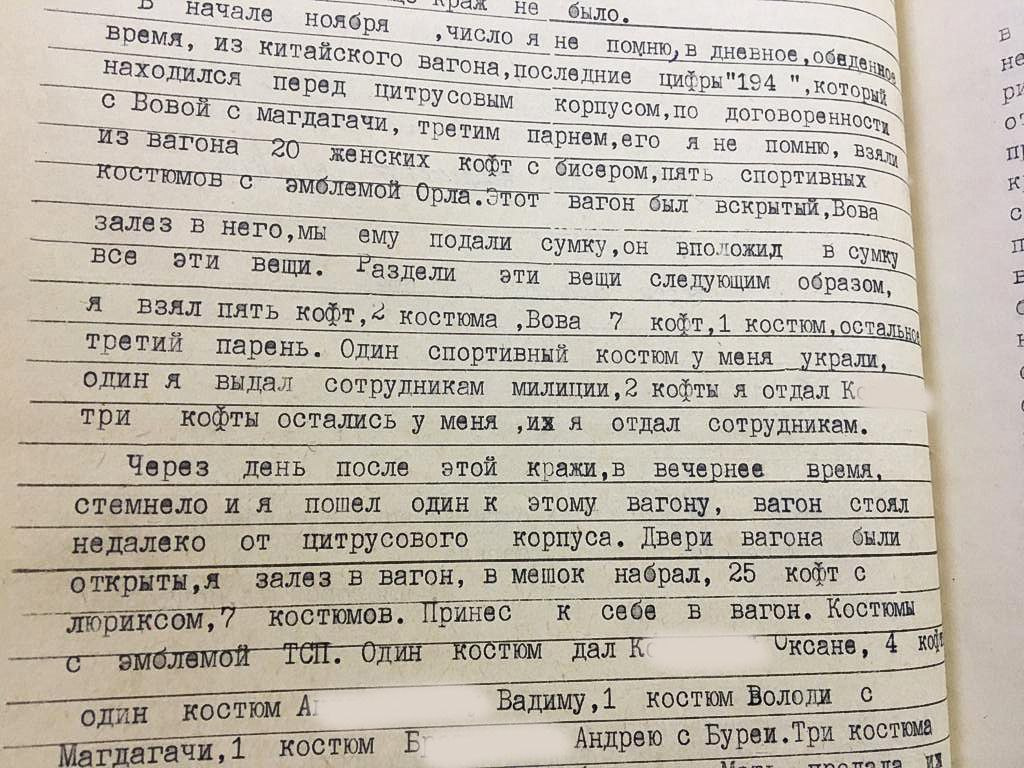 краж не было.
В начале ноября ,число я не помню,в дневное,обеденное
время, из китайского вагона,последние цифры"194 ",который
находился перед цитрусовым корпусом,по договоренности
с Вовой с магдагачи, третим парнем,его я не помню, взяли
из вагона 20 женских кофт с бисером,пять спортивных
костюмов с эмблемой Орла.Этот вагон был вскрытый,Вова
залез в него,мы ему подали сумку,он вположид в сумку
все эти вещи. Раздели эти вещи следующим образом,
я взял пять кофт,2 костюма ,Вова 7 кофт,1 костюм,остальное
третий парень. Один спортивный костюм у меня украли,
один я выдал сотрудникам милиции,2 кофты я отдал К
три кофты остались у меня ,их я отдал сотрудникам.
Через день после этой кражи,в вечернее время,
стемнело и я пошел один к этому вагону, вагон стоял
недалеко от цитрусового корпуса. Двери вагона были
открыты,я залез в вагон, в мешок набрал, 25 кофт с
люриксом,7 костюмов. Принес к себе в вагон. Костюмы
с эмблемой ТСП. Один костюм дал К Оксане, 4 кофт
один костюм А Вадиму,1 костюм Володи с
Магдагачи,1 костюм Б Андрею с Буреи.Три костюма
продала их